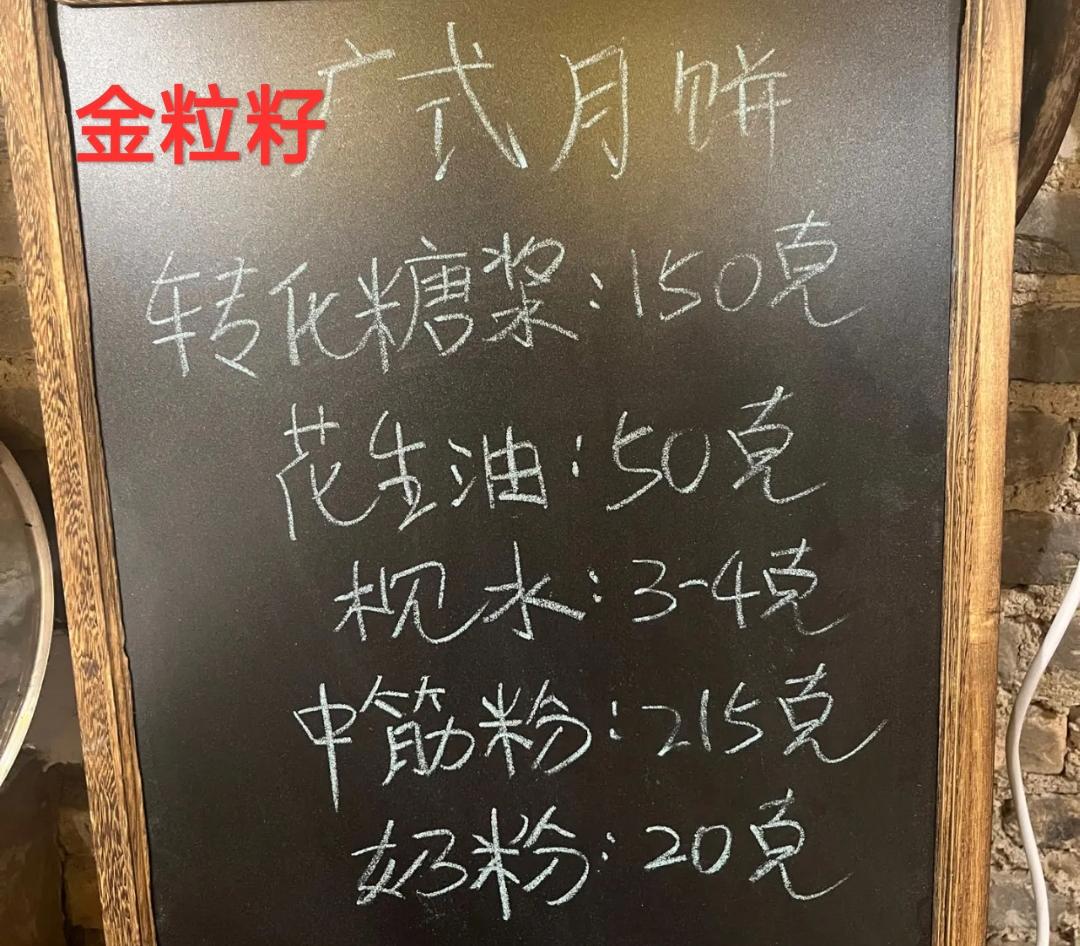 广式月饼
金粒籽
转化糖浆:150克
花生油:50克
枧水:3-4克
中筋粉:215克
奶粉:20克